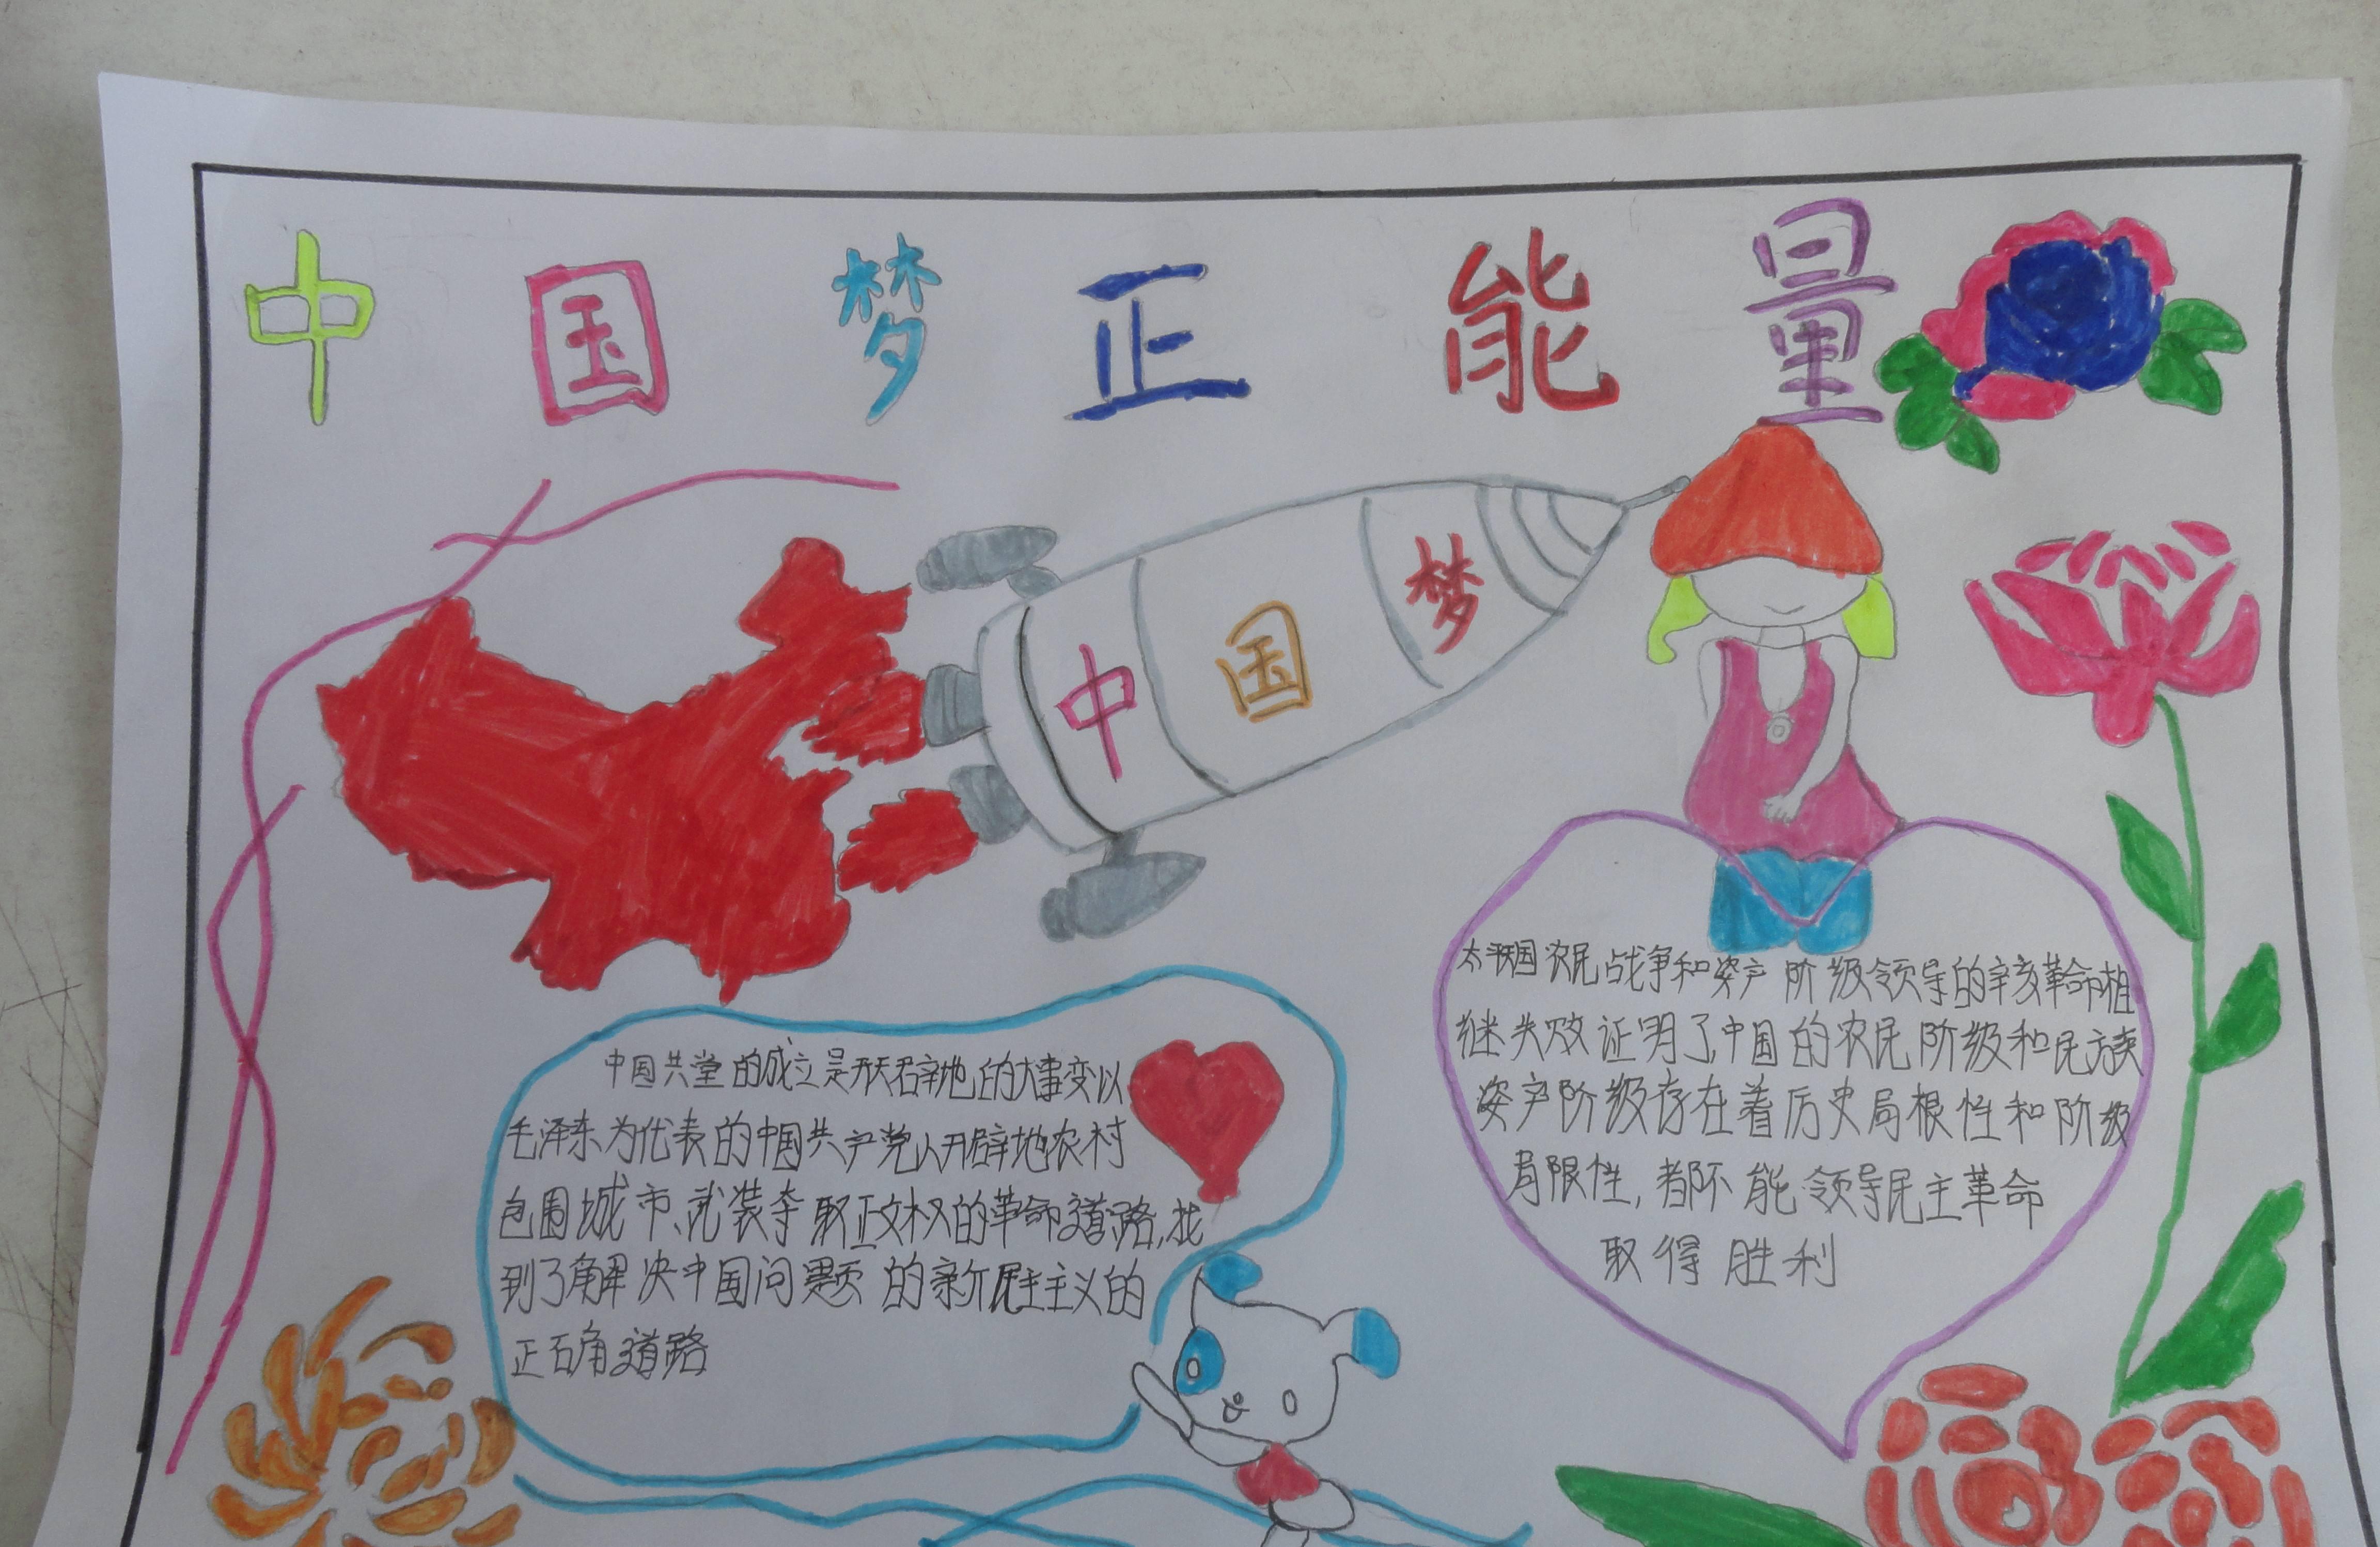 中国梦正能量
中国梦
中国共堂的成立是开天辟地的大事变以
毛泽东为代表的中国共产党人开辟地农村
包围城市、武装夺取正权的革命道路,找
到了解决中国问题的新民主主义的
正石角道路
太平天国农民战争和资产阶级领导的辛亥革命相
继失败证明了中国的农民阶级和民族
资产阶级存在着历史局根性和阶级
局限性,都不能领导民主革命
取得胜利